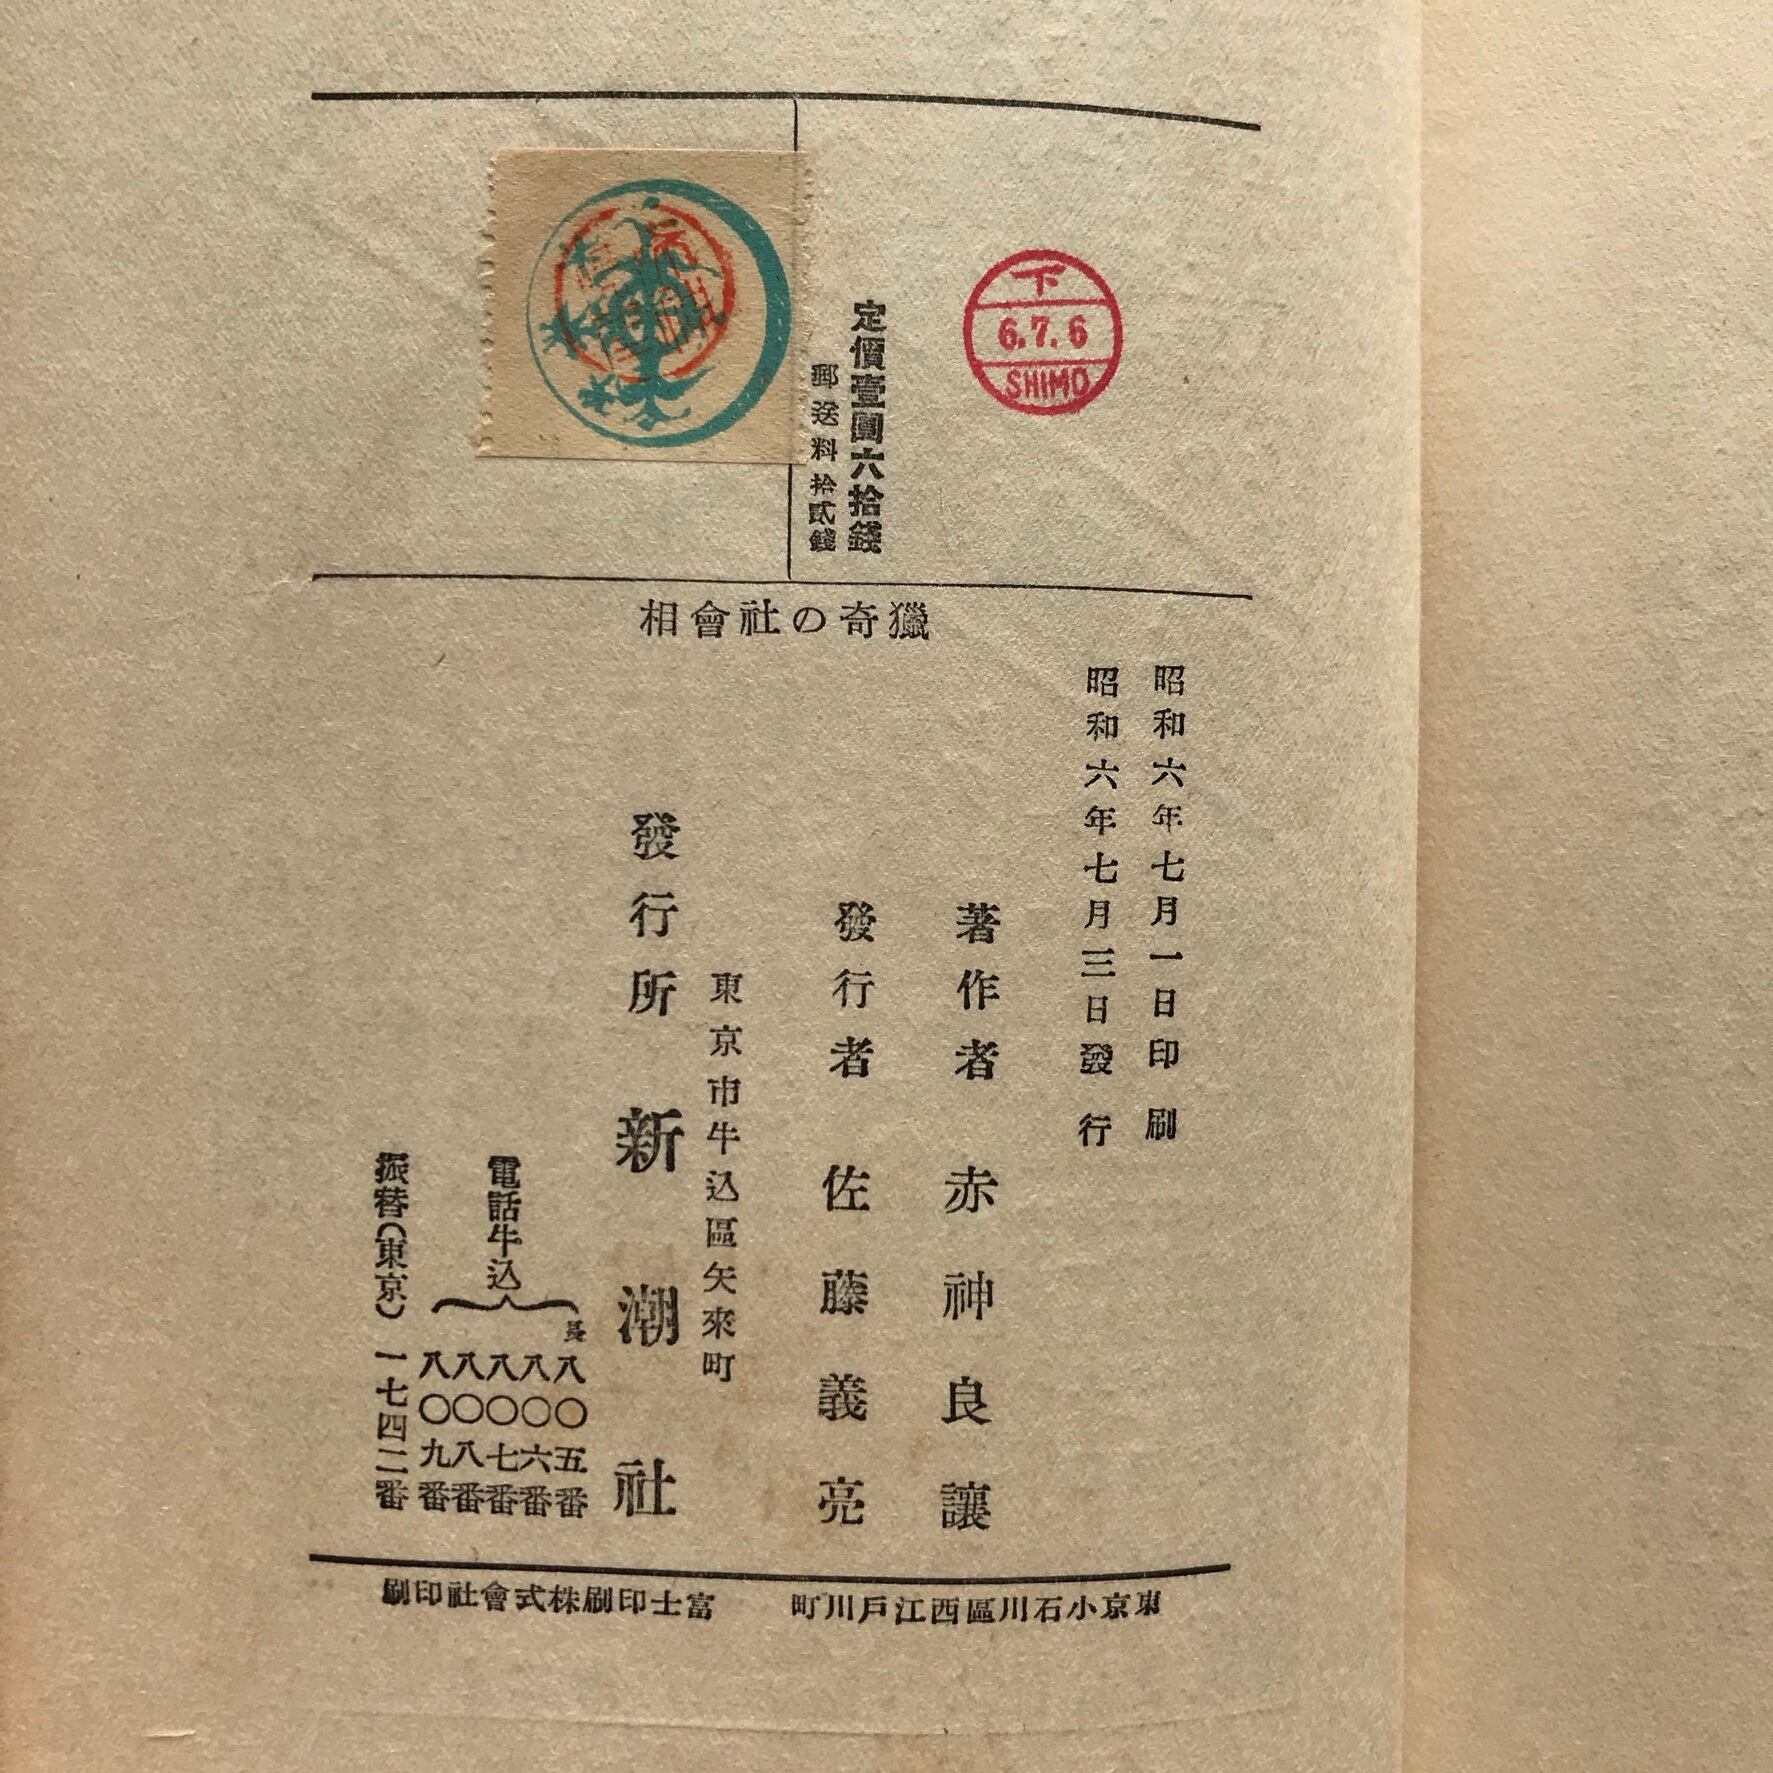 下
6.7.6
SHIMO
定價壹圓六拾錢
郵送料拾貳錢
獵奇の社會相
昭和六年七月一日印刷
昭和六年七月三日發行
著作者 赤神良讓
發行者 佐藤義亮
東京市牛込區矢來町
發行所 新潮社
電話牛込
長八〇五番
八〇六番
八〇七番
八〇八番
八〇九番
振替(東京)一七四二番
東京小石川區西江戶川町 富士印刷株式會社印刷